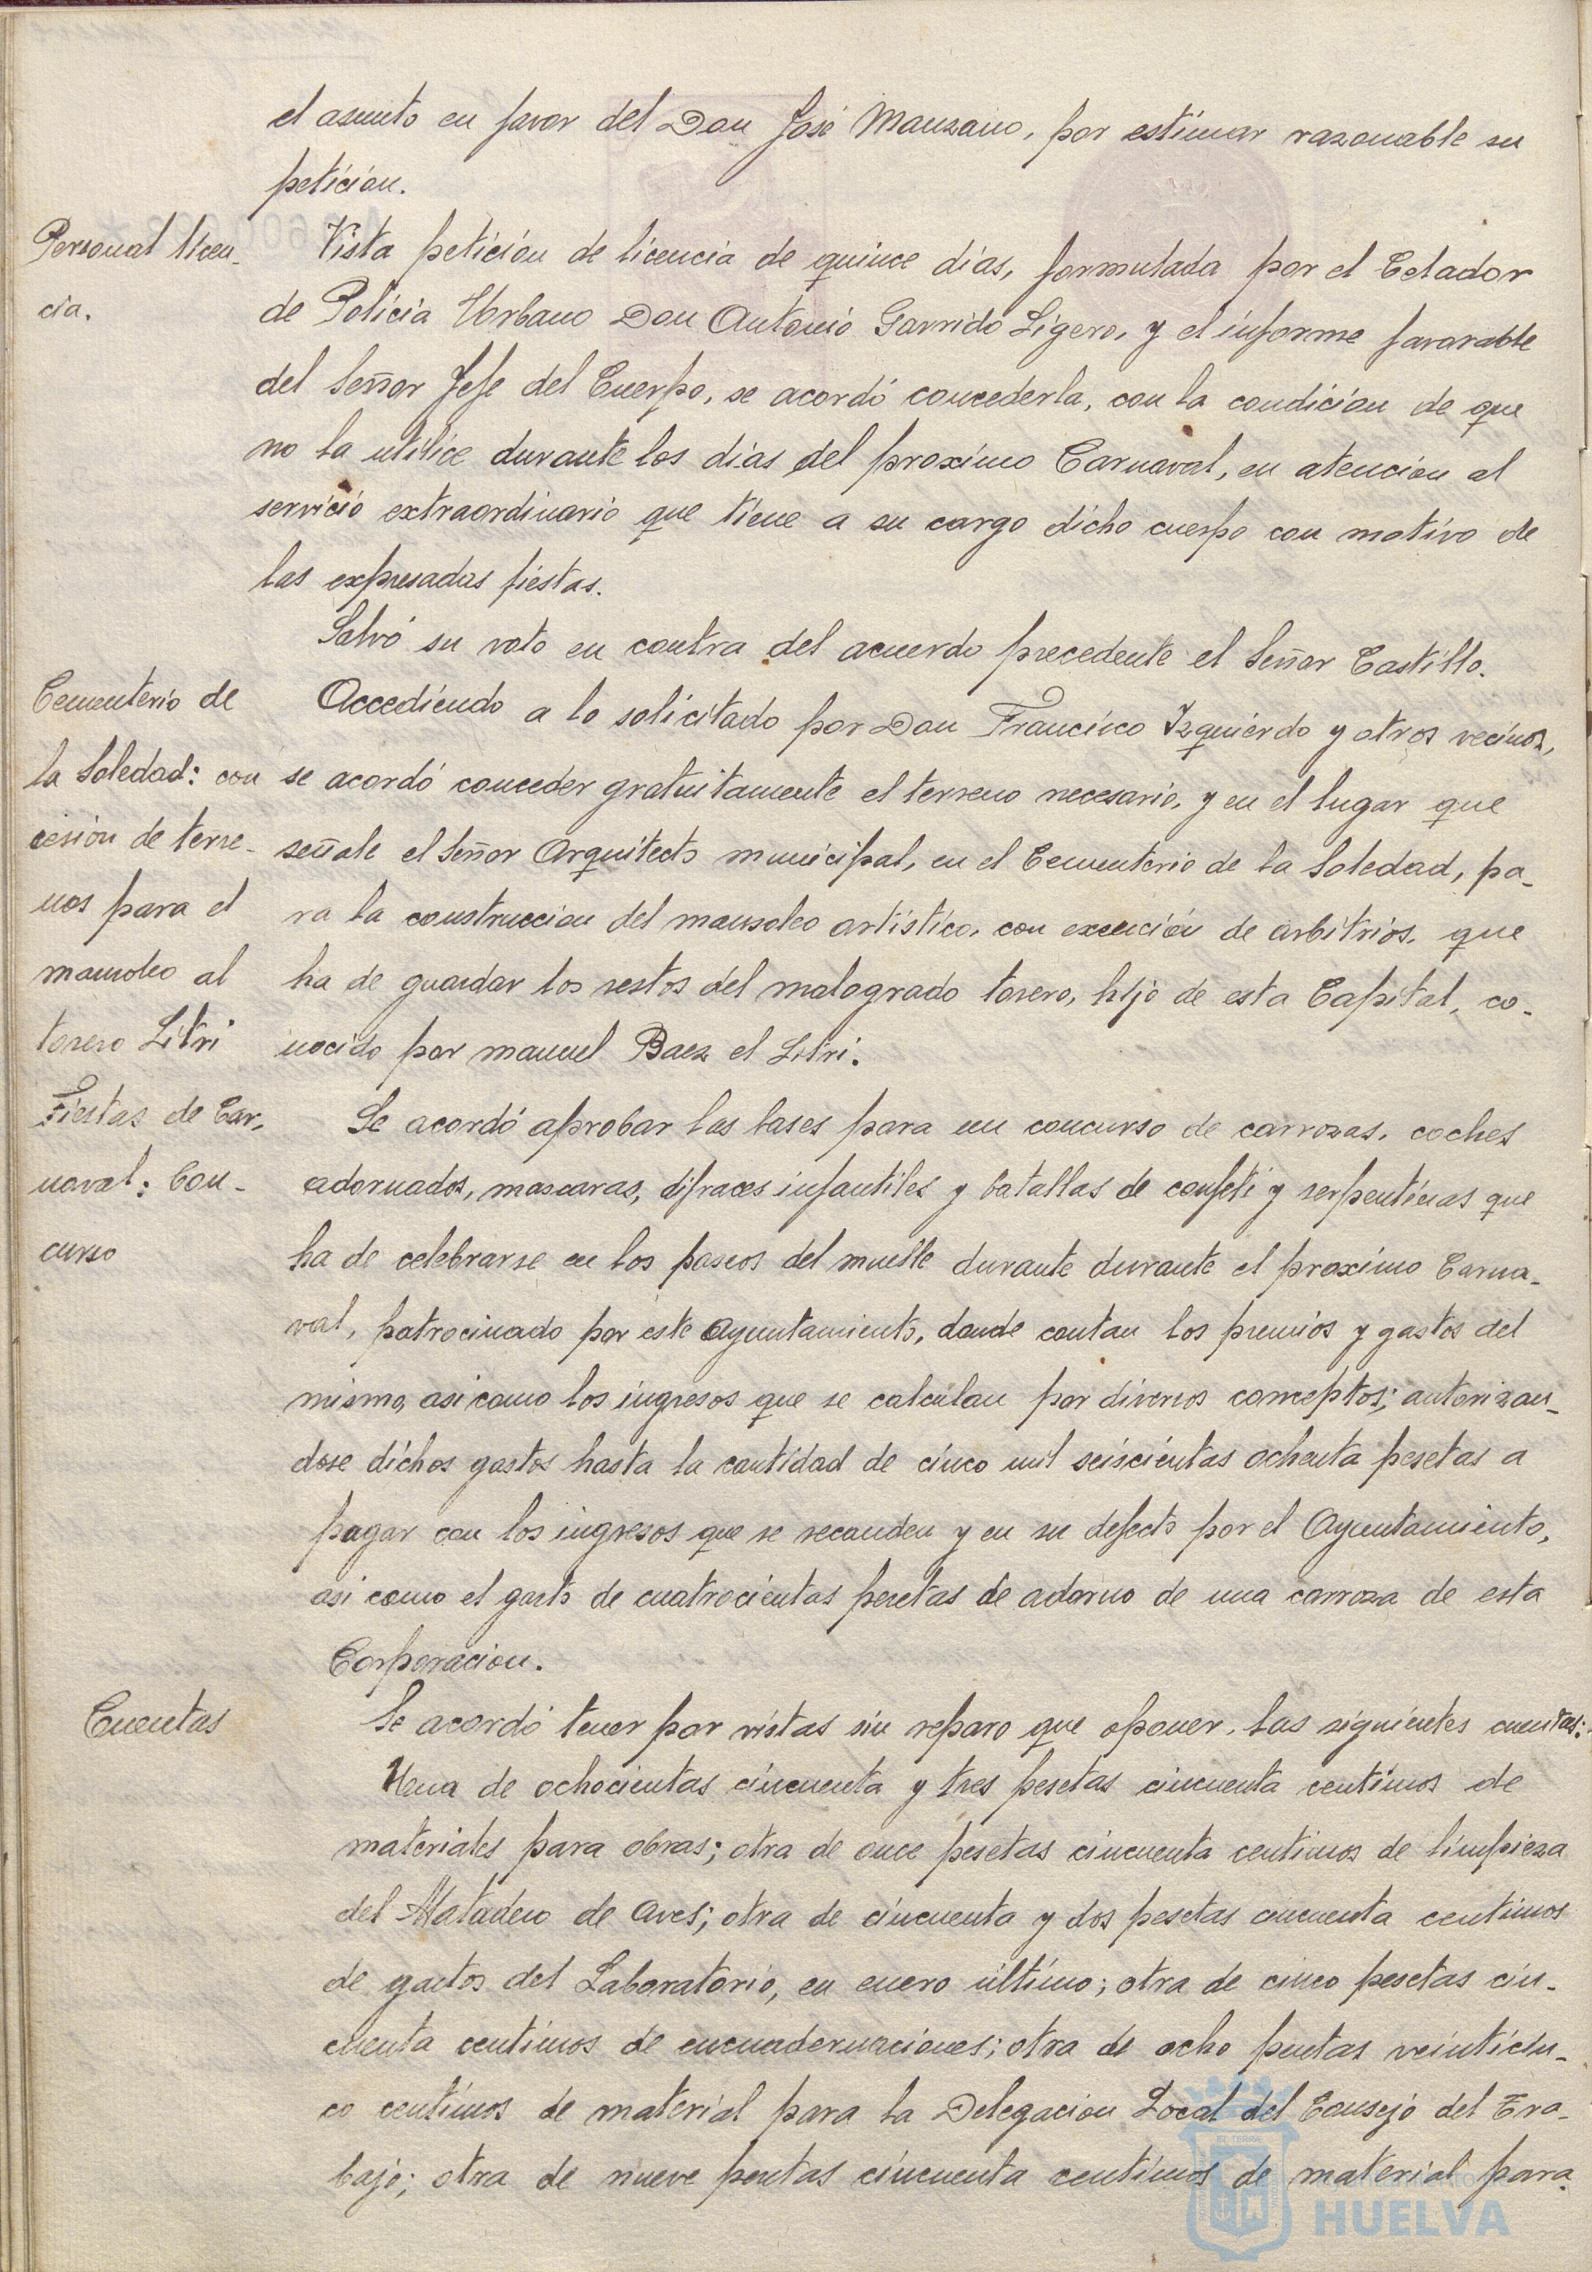 el asunto en favor del Don José Manzano, por estimar razonable su
petición.
Personal licen-
cia.
Vista petición de licencia de quince días, formulada por el Celador
de Policia Urbano Don Antonio Garrido Ligero, y el informe favorable
del Señor Jefe del Cuerpo, se acordó concederla, con la condición de que
no la utilice durante los días del proximo Carnaval, en atencion al
servicio extraordinario que tiene a su cargo dicho cuerpo con motivo de
las expresadas fiestas.
Salvó su voto en contra del acuerdo precedente el Señor Castillo.
Cementerio de
la Soledad: con
cesión de terre-
nos para el
mausoleo al
torero Litri
Accediendo a lo solicitado por Don Francisco Izquierdo y otros vecinos,
se acordó conceder gratuitamente el terreno necesario, y en el lugar que
señale el Señor Arquitecto municipal, en el Cementerio de la Soledad, pa-
ra la construccion del mausoleo artístico, con exención de arbitrios, que
ha de guardar los restos del malogrado torero, hijo de esta Capital, co-
nocido por manuel Baez el Litri.
Fiestas de Car-
naval: Con-
curso
Se acordó aprobar las bases para un concurso de carrozas, coches
adornados, mascaras, difraces infantiles y batallas de confeti y serpentinas que
ha de celebrarse en los paseos del muelle durante durante el proximo Carna-
val, patrocinado por este Ayuntamiento, donde contan los premios y gastos del
mismo, asi como los ingresos que se calculan por diversos conceptos; autorizan-
dose dichos gastos hasta la cantidad de cinco mil seiscientas ochenta pesetas a
pagar con los ingresos que se recauden y en su defecto por el Ayuntamiento,
asi como el gasto de cuatrocientas pesetas de adorno de una carroza de esta
Corporacion.
Cuentas
Se acordó tener por vistas sin reparo que oponer, las siguientes cuentas:
Una de ochocientas cincuenta y tres pesetas cincuenta centimos de
materiales para obras; otra de once pesetas cincuenta centimos de limpieza
del Matadero de aves; otra de cincuenta y dos pesetas cincuenta centimos
de gastos del Laboratorio, en enero último; otra de cinco pesetas cin-
cuenta centimos de encuadernaciones; otra de ocho pesetas veinticin-
co centimos de material para la Delegacion Local del Consejo del Tra-
bajo; otra de nueve pesetas cincuenta centimos de material para
HUELVA